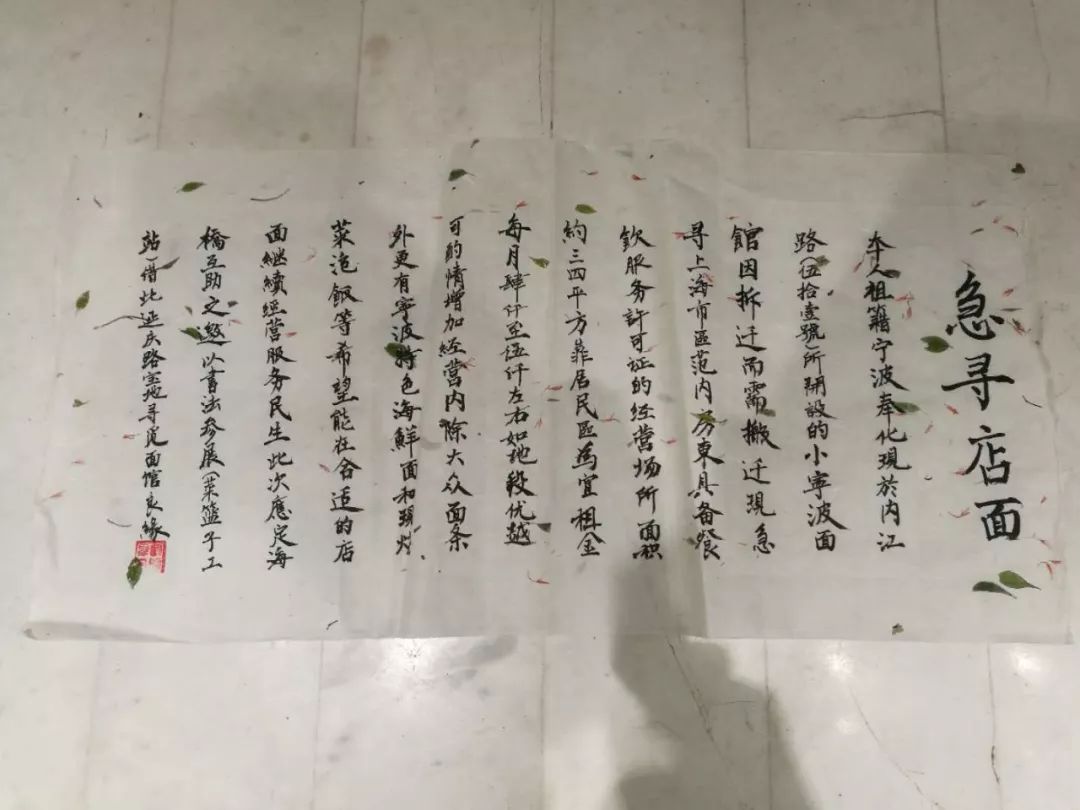 急寻店面
本人祖籍宁波奉化現於内江
路(伍拾壹號)所開設的小寧波面
館因拆迁而需搬迁現急
寻上海市區范内房東具备餐
飲服务許可证的经营场所面积
約三四平方靠居民區為宜租金
每月肆仟至伍仟左右如地段优越
可酌情增加经营内除大众面条
外更有寧波特色海鮮面和現炒
菜泡飯等希望能在合适的店
面継續经营服务民生此次應定海
橋互助之邀以書法参展(菜籃子工
站)借此延庆路宝地寻覓面馆良缘